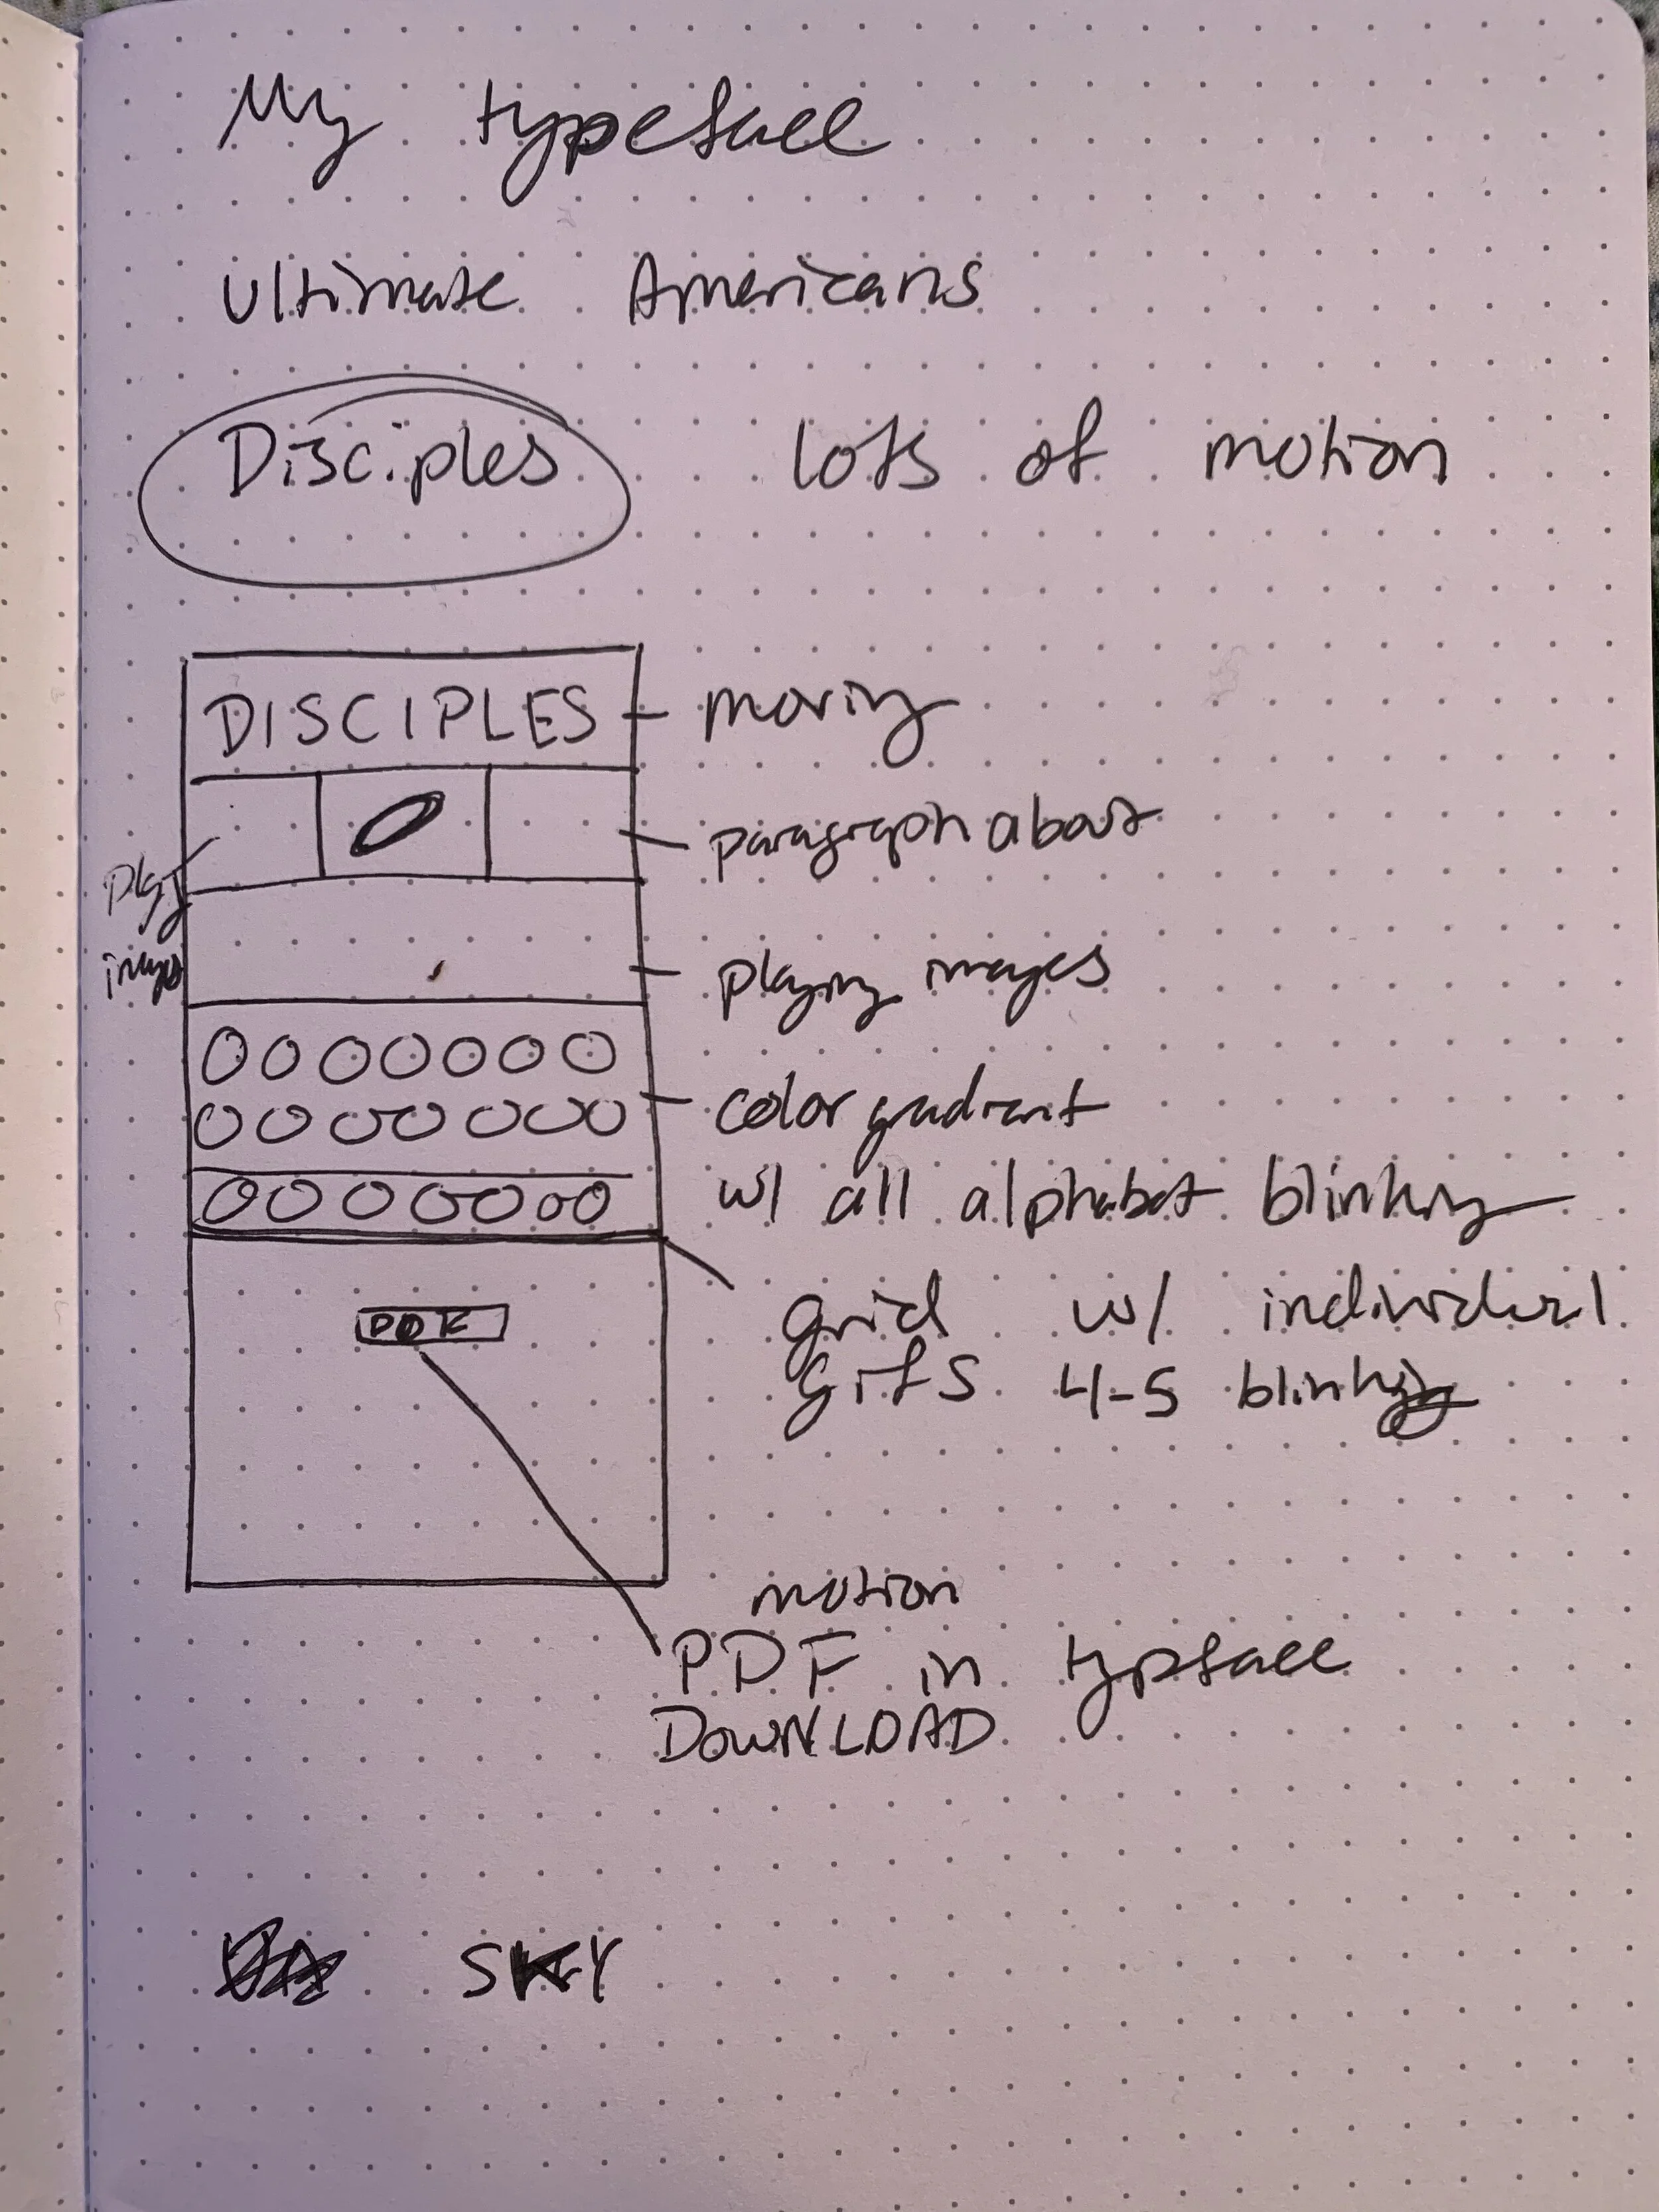 My typeface
Ultimate Americans
Disciples lots of motion
DISCIPLES - moving
paragraph about
play
images
playing images
color gradient
w/ all alphabet blinking
grid w/ individual
gifs 4-5 blinking
PDF
motion
PDF in typface
DOWNLOAD
SKY